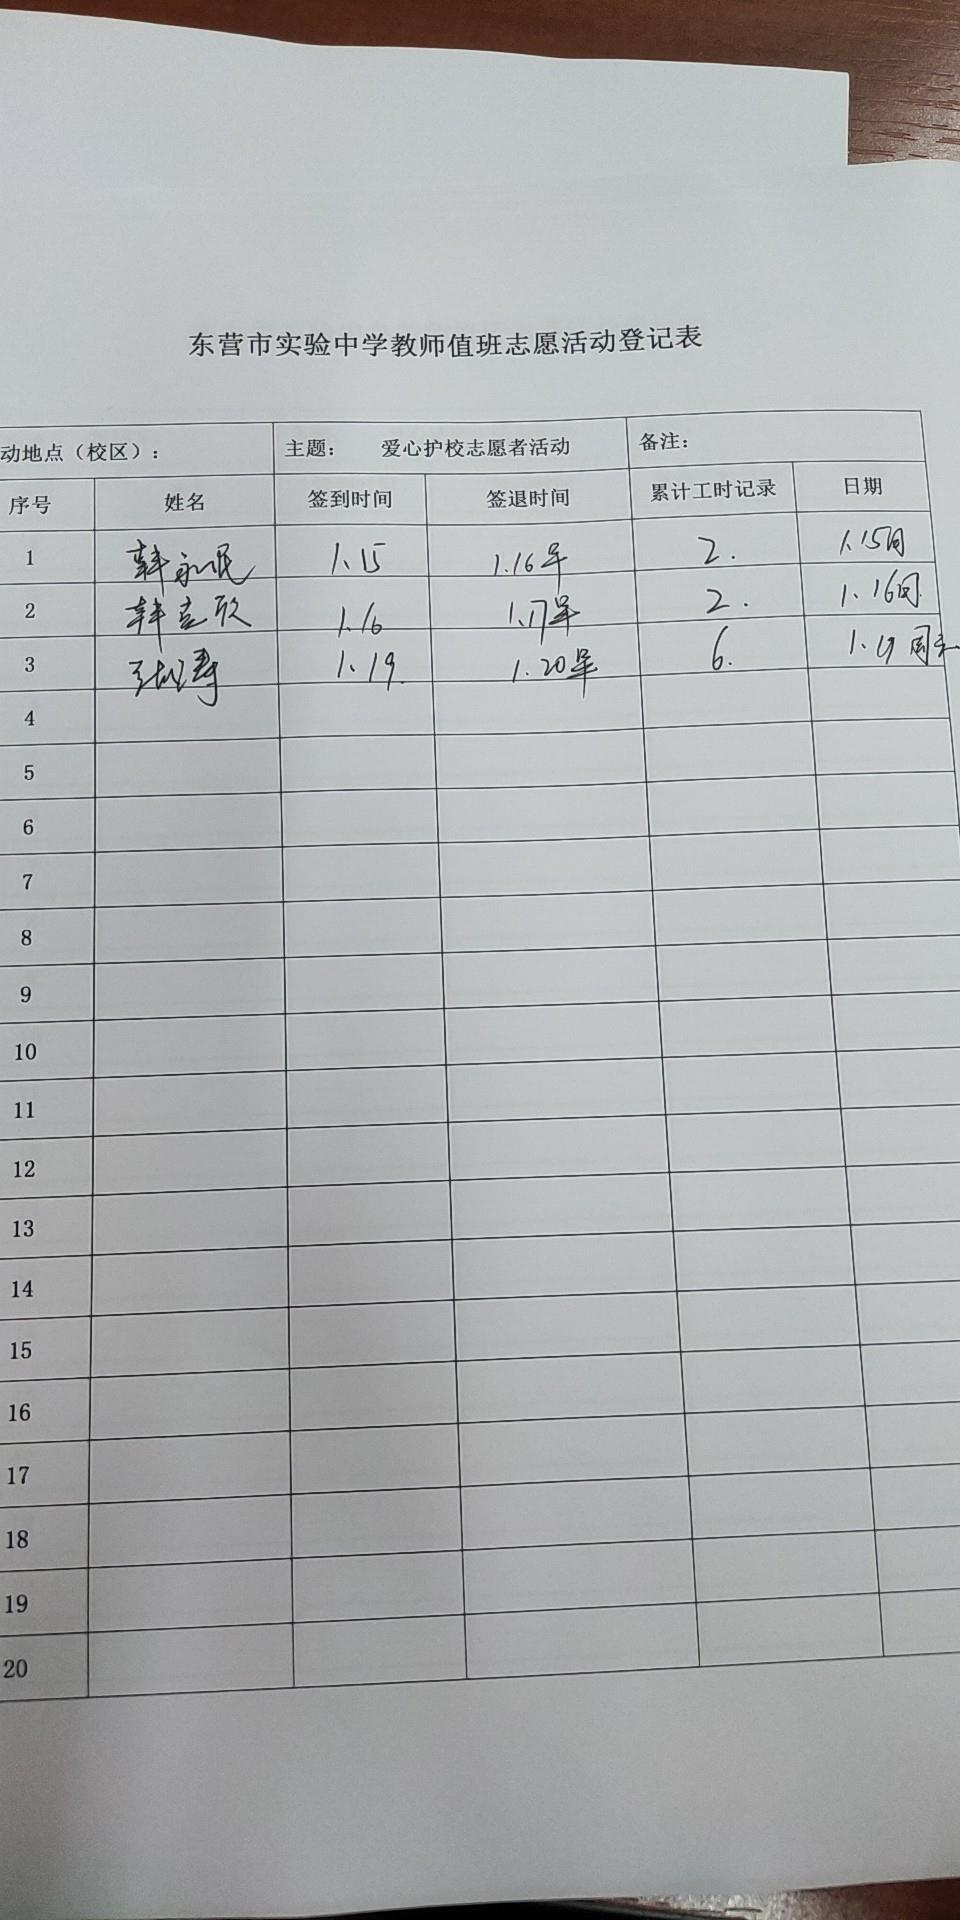 东营市实验中学教师值班志愿活动登记表
动地点（校区）： 主题： 爱心护校志愿者活动 备注：
序号 姓名 签到时间 签退时间 累计工时记录 日期
1 韩永民 1.15 1.16早 2. 1.15周
2 韩 欣 1.16 1.17早 2. 1.16周
3 张 1.19. 1.20早 6. 1.19周末
4
5
6
7
8
9
10
11
12
13
14
15
16
17
18
19
20